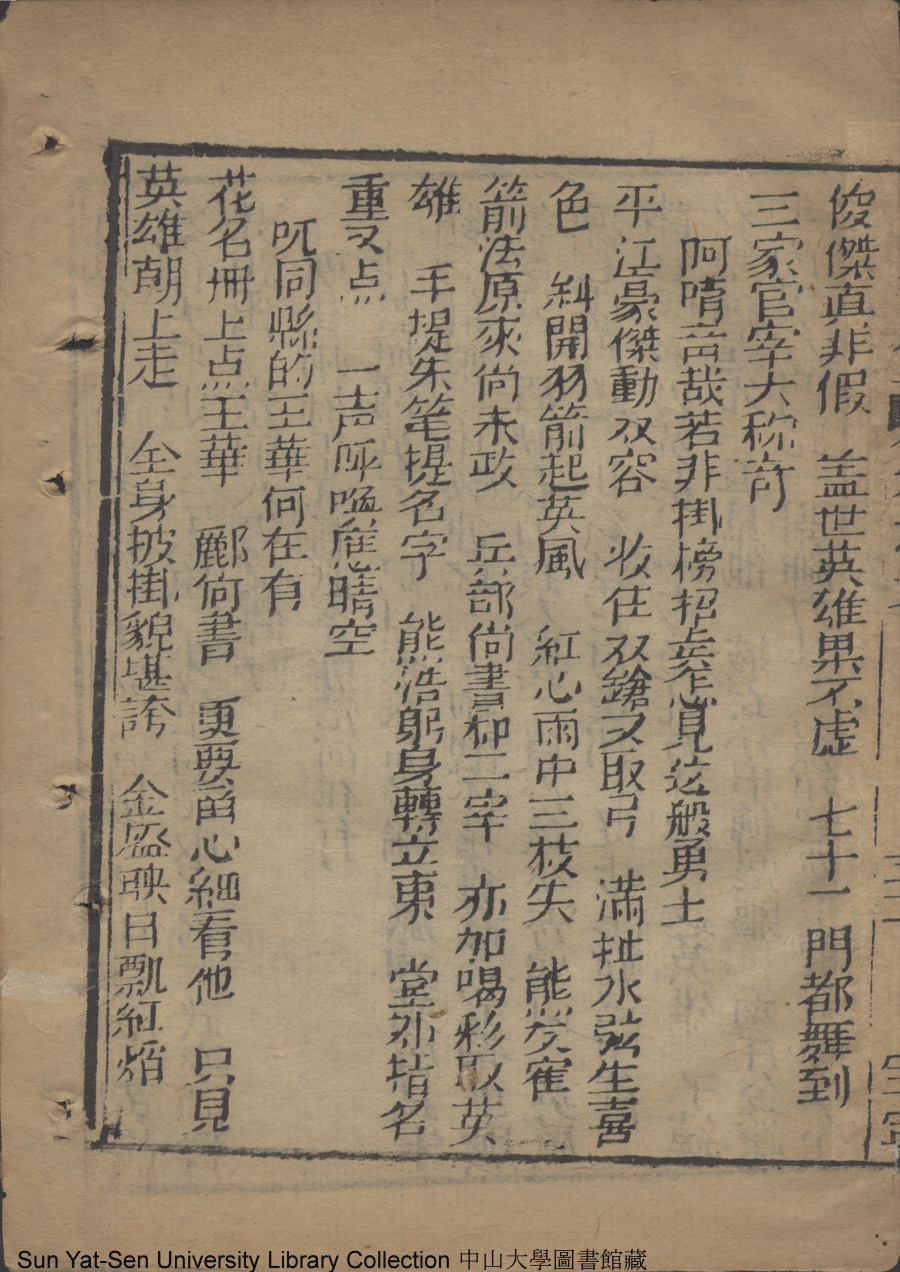 俊傑真非假　盖世英雄果不虛　七十一門都舞到
三家官宰大称奇
阿唷奇哉若非掛榜招委怎見这般勇士
平江豪傑動双容　收住双鎗又取弓　满扯水弦生喜
色　斜開羽箭起英風　紅心雨中三枝失　熊友霍
箭法原來尚未政　兵部尚書柳二宰　亦加喝彩取英
雄　手提朱笔提名字　熊浩躬身轉立東　堂外指名
重又点　一声呼喚應晴空
呒同縣的王華何在有
花名册上点王華　酈尚書　更要留心細看他　只見
英雄朝上走　全身披掛貌堪誇　金盔映日飘紅焰
Sun Yat-Sen University Library Collection 中山大學圖書館藏